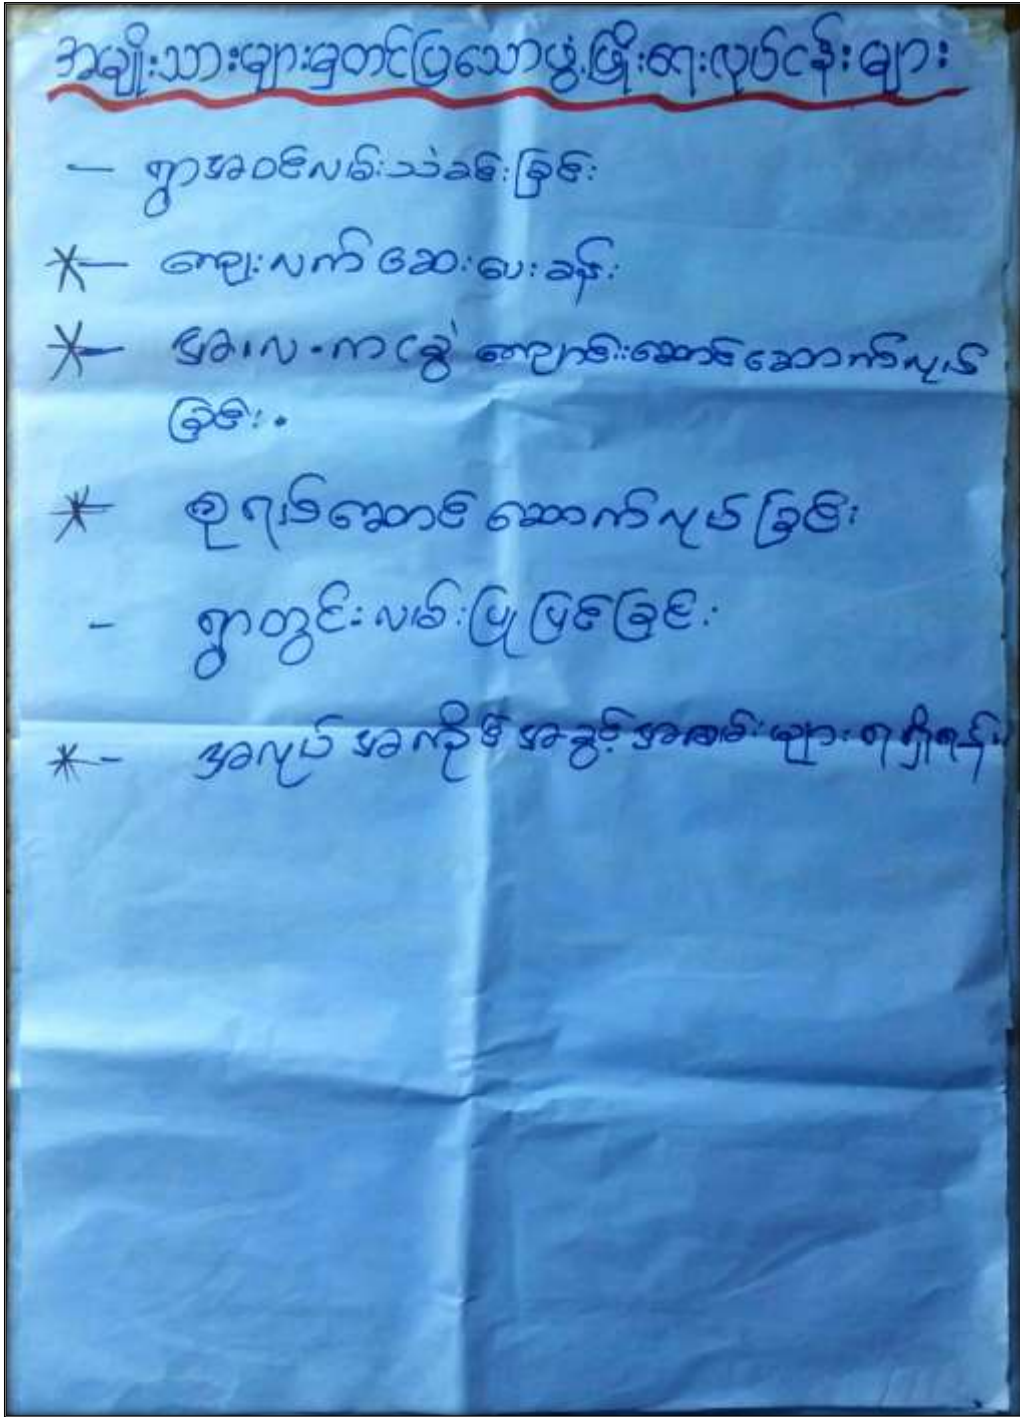 အမျိုးသားများမှတင်ပြသောဖွံ့ဖြိုးရေးလုပ်ငန်းများ
- ရွာအဝင်လမ်းသဲခင်းခြင်း
*- ကျေးလက်ဆေးပေးခန်း
*- အ.လ.က ခွဲ ကျောင်းဆောင်ဆောက်လုပ်
ခြင်း.
*- စုရပ်ဆောင်ဆောက်လုပ်ခြင်း
- ရွာတွင်းလမ်းပြုပြင်ခြင်း
*- အလုပ်အကိုင်အခွင့်အလမ်းများရရှိရန်.